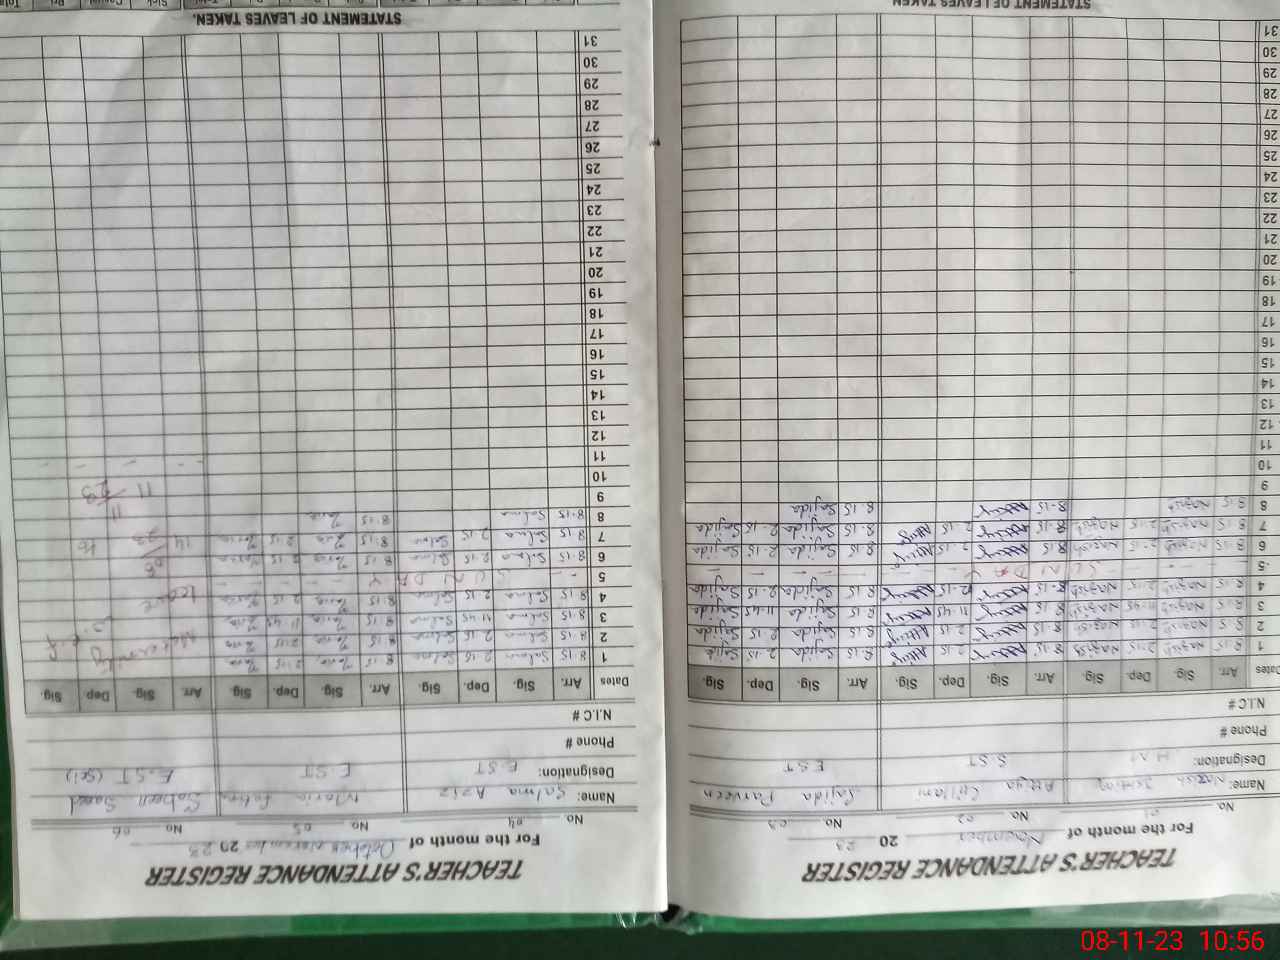 TEACHER'S ATTENDANCE REGISTER
For the month of November 20 23
No. 01 No. 02 No. 03
Name: Nazish Attiya Gillani Sajida Parveen
Designation: H.M S.ST E.ST
Phone #
N.I.C #
Dates Arr. Sig. Dep. Sig. Arr. Sig. Dep. Sig. Arr. Sig. Dep. Sig.
1 8.15 Nazish 2.15 Nazish 8.15 2.15 8.15 Sajida 2.15 Sajida
2 8.15 Nazish 2.15 Nazish 8.15 2.15 8.15 Sajida 2.15 Sajida
3 8.15 Nazish 11.45 Nazish 8.15 11.45 8.15 Sajida 11.45 Sajida
4 8.15 Nazish 2.15 Nazish 8.15 2.15 8.15 Sajida 2.15 Sajida
5 SUNDAY
6 8.15 Nazish 2.15 Nazish 8.15 2.15 8.15 Sajida 2.15 Sajida
7 8.15 Nazish 2.15 Nazish 8.15 2.15 8.15 Sajida 2.15 Sajida
8 8.15 Nazish 8.15 8.15 Sajida
9
10
11
12
13
14
15
16
17
18
19
20
21
22
23
24
25
26
27
28
29
30
31
STATEMENT OF LEAVES TAKEN
TEACHER'S ATTENDANCE REGISTER
For the month of October November 20 23
No. 04 No. 05 No. 06
Name: Salma Aziz Maria Sabeen Saeed
Designation: E.ST E.ST E.ST (Sci)
Phone #
N.I.C #
Dates Arr. Sig. Dep. Sig. Arr. Sig. Dep. Sig. Arr. Sig. Dep. Sig.
1 8.15 Salma 2.15 Salma 8.15 2.15 Maternity
2 8.15 Salma 2.15 Salma 8.15 2.15
3 8.15 Salma 11.45 Salma 8.15 11.45
4 8.15 Salma 2.15 Salma 8.15 2.15 Leave
5 SUNDAY
6 8.15 Salma 2.15 Salma 8.15 2.15
7 8.15 Salma 2.15 Salma 8.15 2.15 14 23 to
8 8.15 Salma 8.15
9 11 23
10
11
12
13
14
15
16
17
18
19
20
21
22
23
24
25
26
27
28
29
30
31
STATEMENT OF LEAVES TAKEN.
08-11-23 10:56